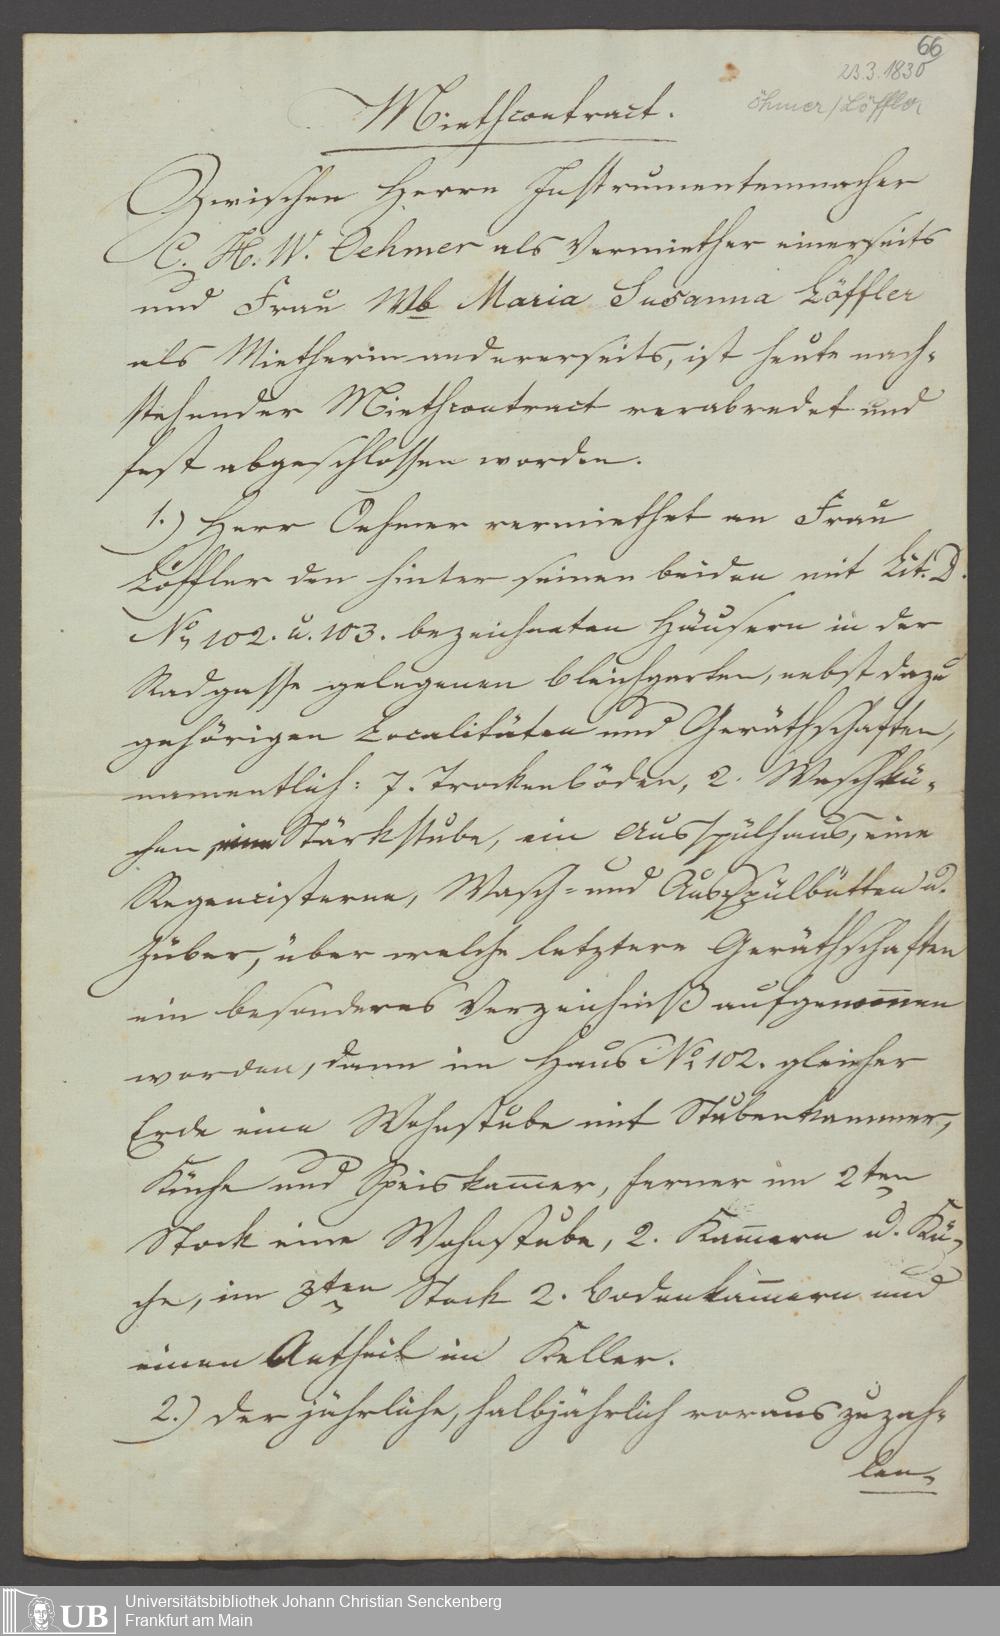 66
23.3.1830
Öhmer/Löffler
Miethcontract.
Zwischen Herrn Instrumentenmacher
C. H. W. Oehmer als Vermiether einerseits
und Frau Wb Maria Susanna Löffler
als Mietherin andererseits, ist heute nach-
stehender Miethcontract verabredet und
fest abgeschlossen worden.
1.) Herr Oehmer vermiethet an Frau
Löffler den hinter seinen beiden mit Lit. D.
No 102. u. 103. bezeichneten Häusern in der
Radgasse gelegenen Bleichgarten, nebst dazu
gehörigen Localitäten und Geräthschaften,
namentlich: 7. Trockenböden, 2. Waschkü-
chen eine Stärkstube, ein Ausspülhaus, eine
Regencisterne, Wasch- und Ausspülbütten u.
Züber, über welche letztere Geräthschaften
ein besonderes Verzeichniß aufgenommen
worden, dann im Haus No 102. gleicher
Erde eine Wohnstube mit Stubenkammer,
Küche und Speiskammer, ferner im 2ten
Stock eine Wohnstube, 2. Kammern u. Kü-
che, im 3ten Stock 2. Bodenkammern und
einen Antheil im Keller.
2.) Der jährliche, halbjährlich voraus zuzah-
len-
UB
Universitätsbibliothek Johann Christian Senckenberg
Frankfurt am Main